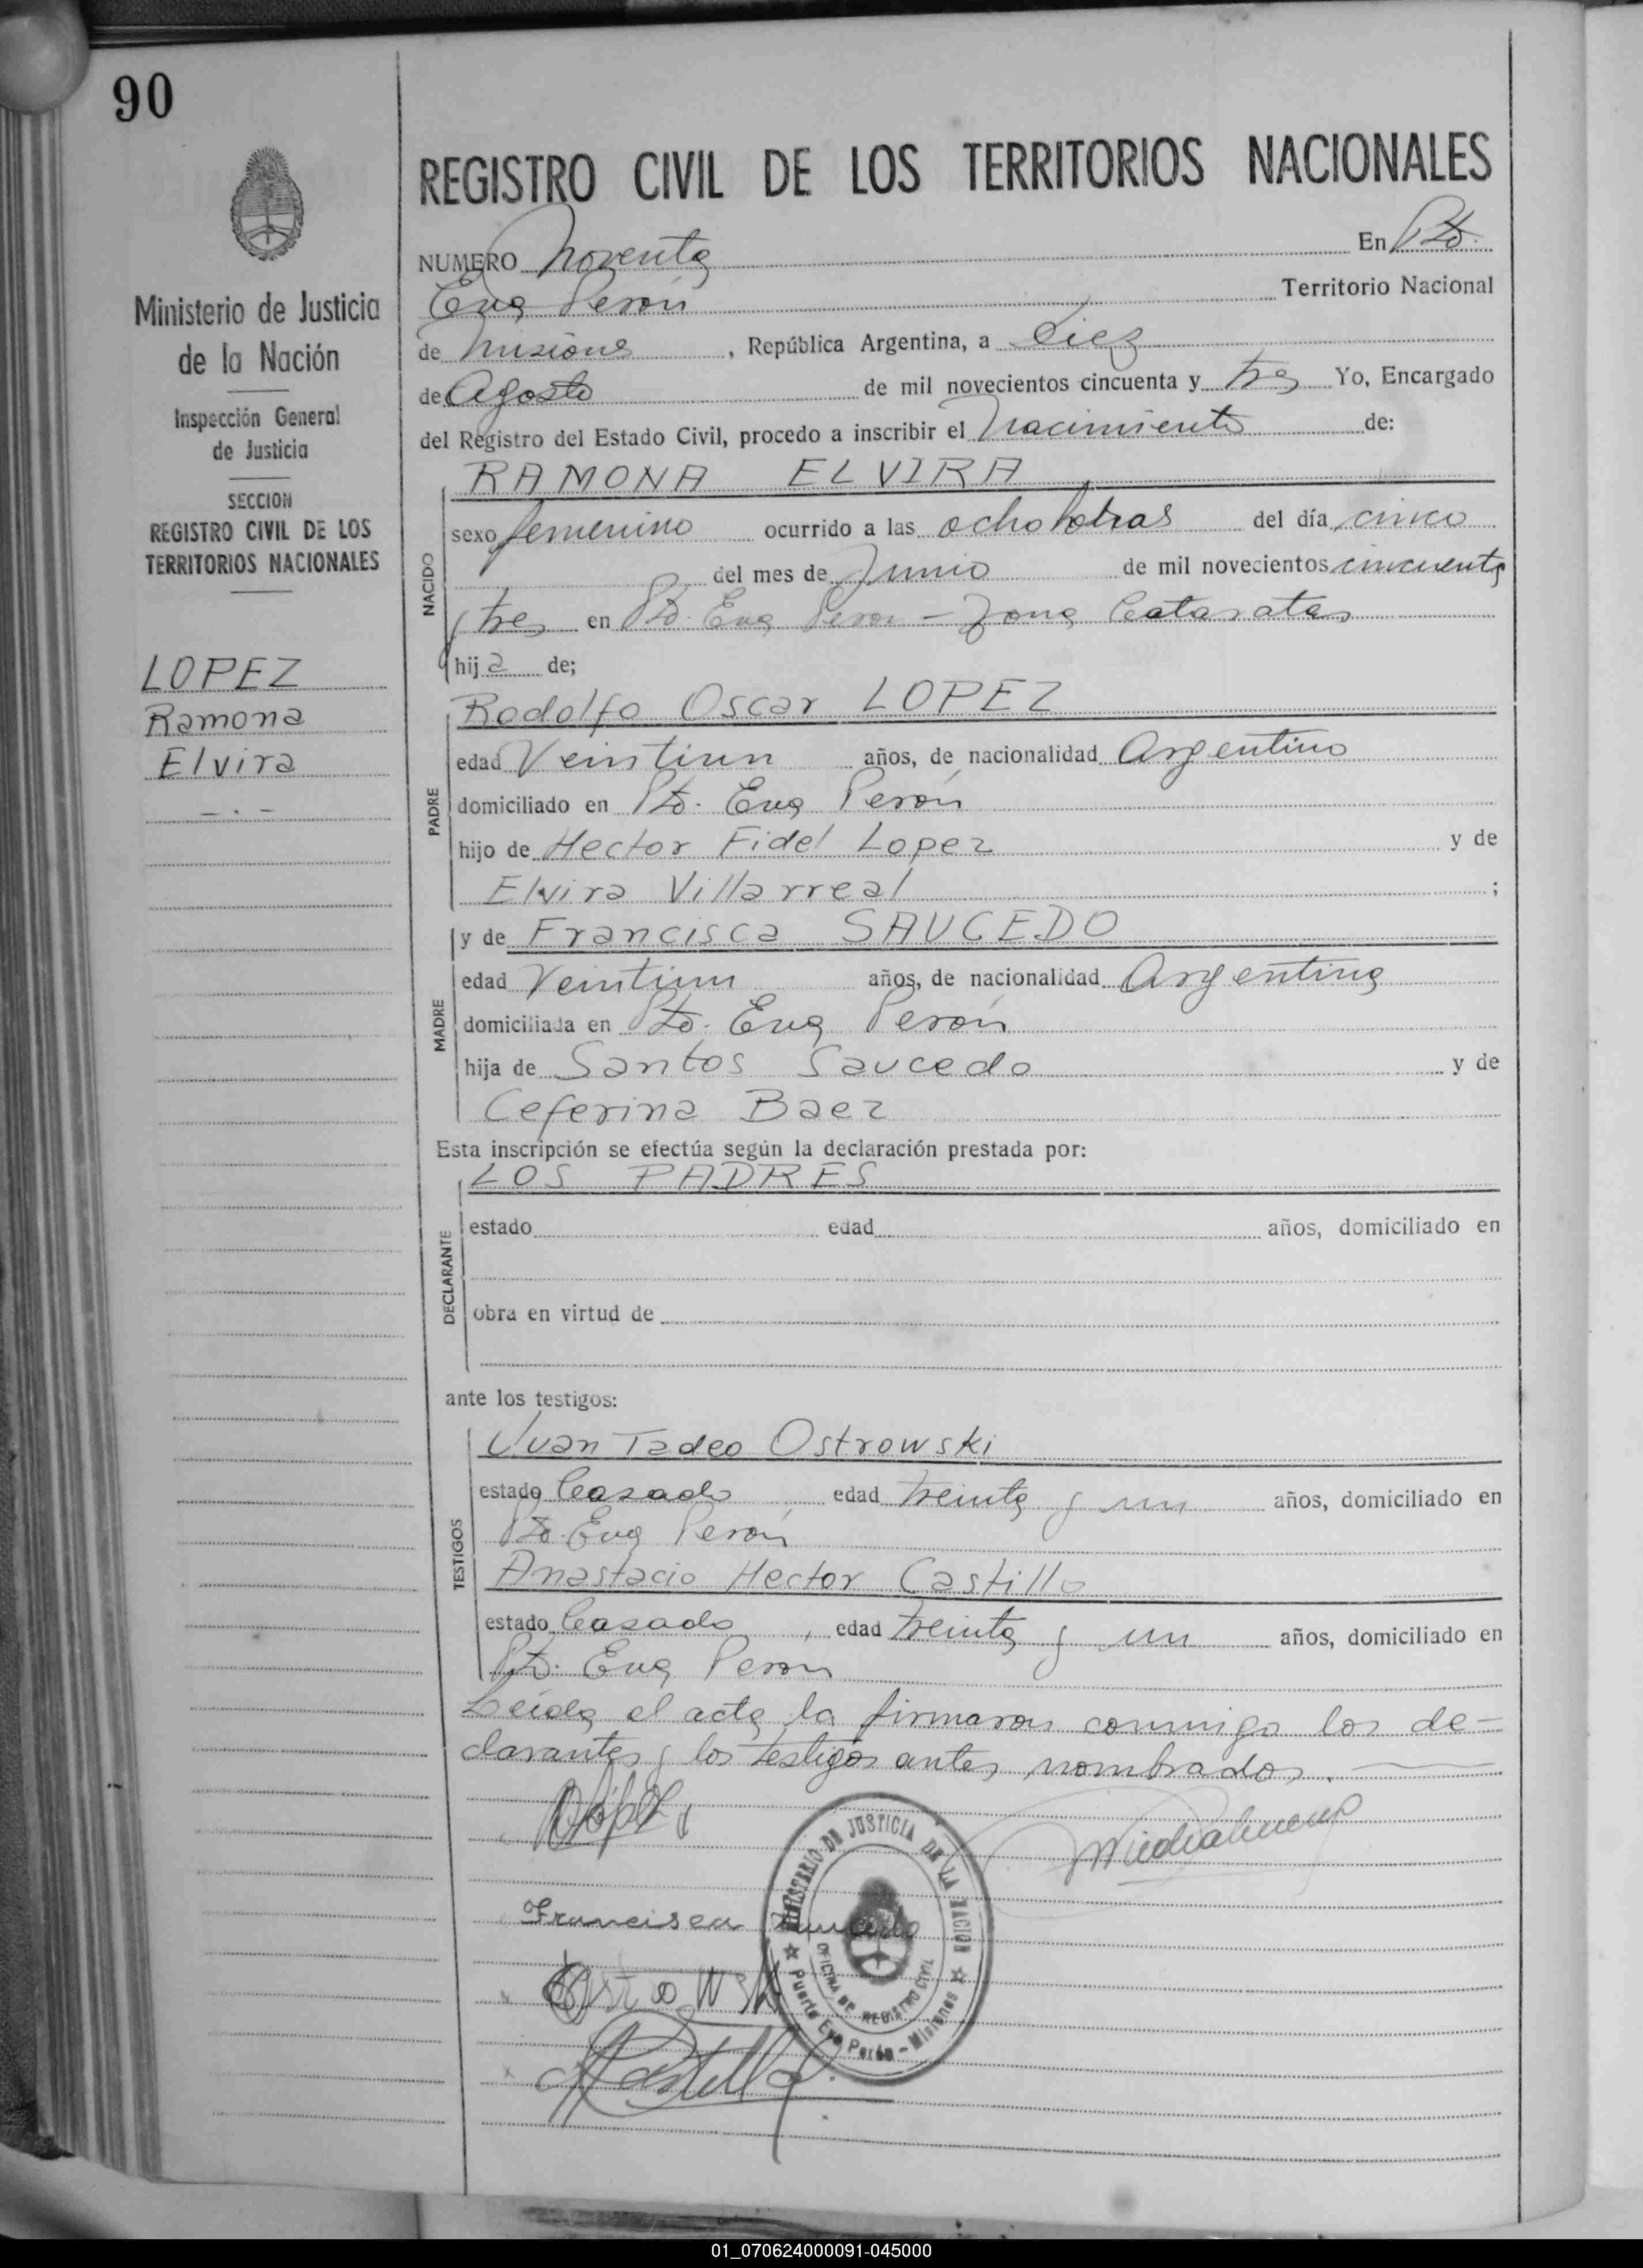 90
REGISTRO CIVIL DE LOS TERRITORIOS NACIONALES
NUMERO Noventa En Pto.
Eva Perón Territorio Nacional
de Misiones, República Argentina, a diez
de Agosto de mil novecientos cincuenta y tres Yo, Encargado
del Registro del Estado Civil, procedo a inscribir el Nacimiento de:
Ministerio de Justicia
de la Nación
Inspección General
de Justicia
SECCION
REGISTRO CIVIL DE LOS
TERRITORIOS NACIONALES
LOPEZ
Ramona
Elvira
NACIDO
RAMONA ELVIRA
sexo femenino ocurrido a las ocho horas del día cinco
del mes de Junio de mil novecientos cincuenta
y tres en Pto. Eva Peron - Zona Cataratas
hija de;
PADRE
Rodolfo Oscar LOPEZ
edad Veintiun años, de nacionalidad Argentino
domiciliado en Pto. Eva Perón
hijo de Hector Fidel Lopez y de
Elvira Villarreal ;
MADRE
y de Francisca SAUCEDO
edad Veintiun años, de nacionalidad Argentina
domiciliada en Pto. Eva Perón
hija de Santos Saucedo y de
Ceferina Baez
Esta inscripción se efectúa según la declaración prestada por:
DECLARANTE
LOS PADRES
estado edad años, domiciliado en
obra en virtud de
ante los testigos:
TESTIGOS
Juan Tadeo Ostrowski
estado Casado edad treinta y un años, domiciliado en
Pto. Eva Perón
Anastacio Hector Castillo
estado Casado, edad treinta y un años, domiciliado en
Pto. Eva Peron
Leída el acta la firmaron conmigo los de-
clarantes y los testigos antes nombrados.
MINISTERIO DE JUSTICIA DE LA NACION
OFICINA DE REGISTRO CIVIL
Puerto Eva Perón - Misiones
Francisca Saucedo
Ostrowski
HCastillo
01_070624000091-045000